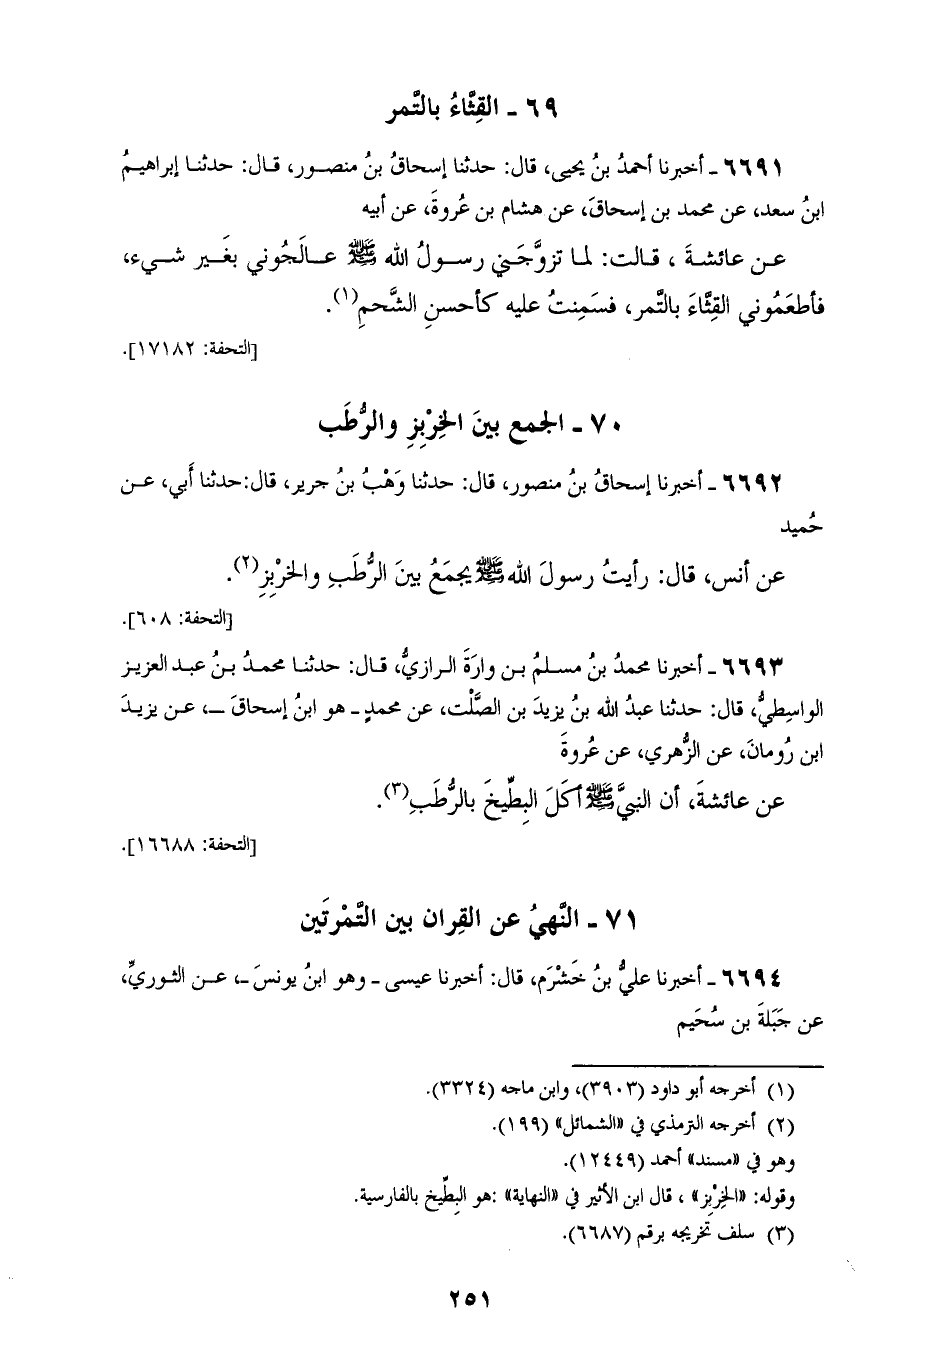 ٦٩ ـ القِثَّاءُ بالتَّمر
٦٦٩١ ـ أخبرنا أحمدُ بنُ يحيى، قال: حدثنا إسحاقُ بنُ منصور، قال: حدثنا إبراهيمُ
ابنُ سعد، عن محمد بن إسحاقَ، عن هشام بن عُروةَ، عن أبيه
عن عائشةَ ، قالت: لما تزوَّجَني رسولُ الله ﷺ عالَجُوني بغَير شيء،
فأطعَمُوني القِثَّاءَ بالتَّمر، فسَمِنتُ عليه كأحسنِ الشَّحمِ(١).
[التحفة: ١٧١٨٢].
٧٠ ـ الجمع بينَ الخِرْبِزِ والرُّطَب
٦٦٩٢ ـ أخبرنا إسحاقُ بنُ منصور، قال: حدثنا وَهْبُ بنُ جرير، قال:حدثنا أَبي، عن
حُميد
عن أنس، قال: رأيتُ رسولَ الله ﷺ يجمَعُ بينَ الرُّطَبِ والخِرْبِزِ(٢).
[التحفة: ٦٠٨].
٦٦٩٣ ـ أخبرنا محمدُ بنُ مسلمُ بن وارَةَ الرازيُّ، قال: حدثنا محمدُ بنُ عبد العزيز
الواسِطيُّ، قال: حدثنا عبدُ الله بنُ يزيدَ بن الصَّلْت، عن محمدٍ ـ هو ابنُ إسحاقَ ـ، عن يزيدَ
ابن رُومانَ، عن الزُّهري، عن عُروةَ
عن عائشةَ، أن النبيَّ ﷺ أكَلَ البِطِّيخَ بالرُّطَبِ(٣).
[التحفة: ١٦٦٨٨].
٧١ ـ النَّهيُ عن القِران بين التَّمْرتَين
٦٦٩٤ ـ أخبرنا عليُّ بنُ خَشْرَم، قال: أخبرنا عيسى ـ وهو ابنُ يونسَ ـ، عن الثوريِّ،
عن جَبَلةَ بن سُحَيم
(١) أخرجه أبو داود (٣٩٠٣)، وابن ماجه (٣٣٢٤).
(٢) أخرجه الترمذي في «الشمائل» (١٩٩).
وهو في «مسند» أحمد (١٢٤٤٩).
وقوله: «الخِرْبِز» ، قال ابن الأثير في «النهاية» :هو البِطِّيخ بالفارسية.
(٣) سلف تخريجه برقم (٦٦٨٧).
٢٥١